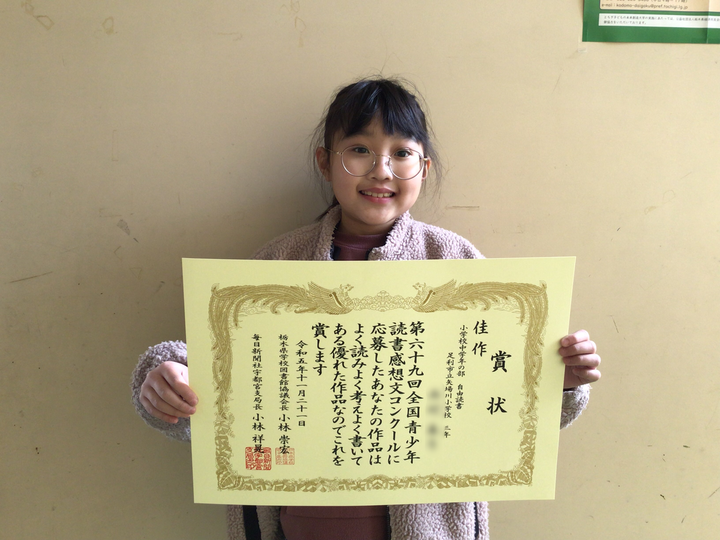 賞状
佳作
小学校中学年の部 自由読書
足利市立矢場川小学校 三年
第六十九回全国青少年
読書感想文コンクールに
応募したあなたの作品は
よく読みよく考えよく書いて
ある優れた作品なのでこれを
賞します
令和五年十一月二十一日
栃木県学校図書館協議会長 小林 崇宏
毎日新聞社宇都宮支局長 小林 祥晃